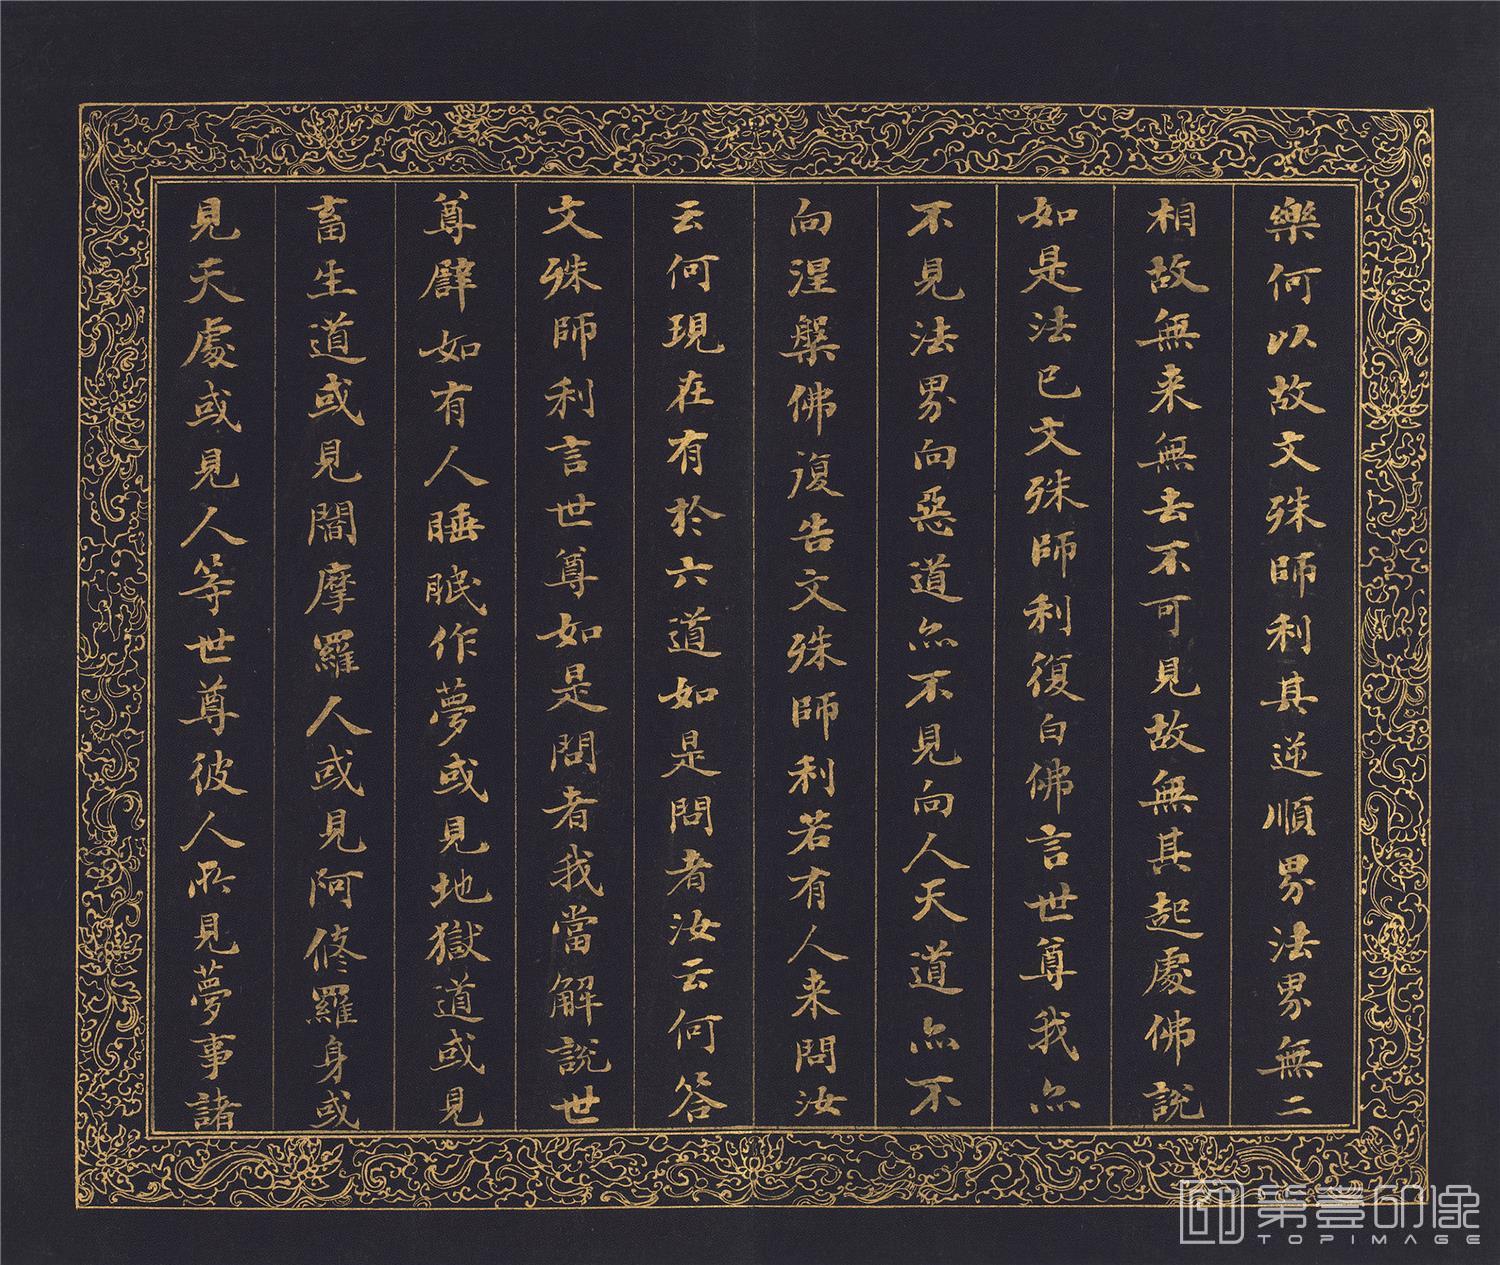 樂何以故文殊師利其逆順界法界無二
相故無来無去不可見故無其起處佛說
如是法已文殊師利復白佛言世尊我亦
不見法界向惡道亦不見向人天道亦不
向涅槃佛復告文殊師利若有人来問汝
云何現在有於六道如是問者汝云何答
文殊師利言世尊如是問者我當解說世
尊譬如有人睡眠作夢或見地獄道或見
畜生道或見閻摩羅人或見阿修羅身或
見天處或見人等世尊彼人所見夢事諸
第壹印像
TOPIMAGE